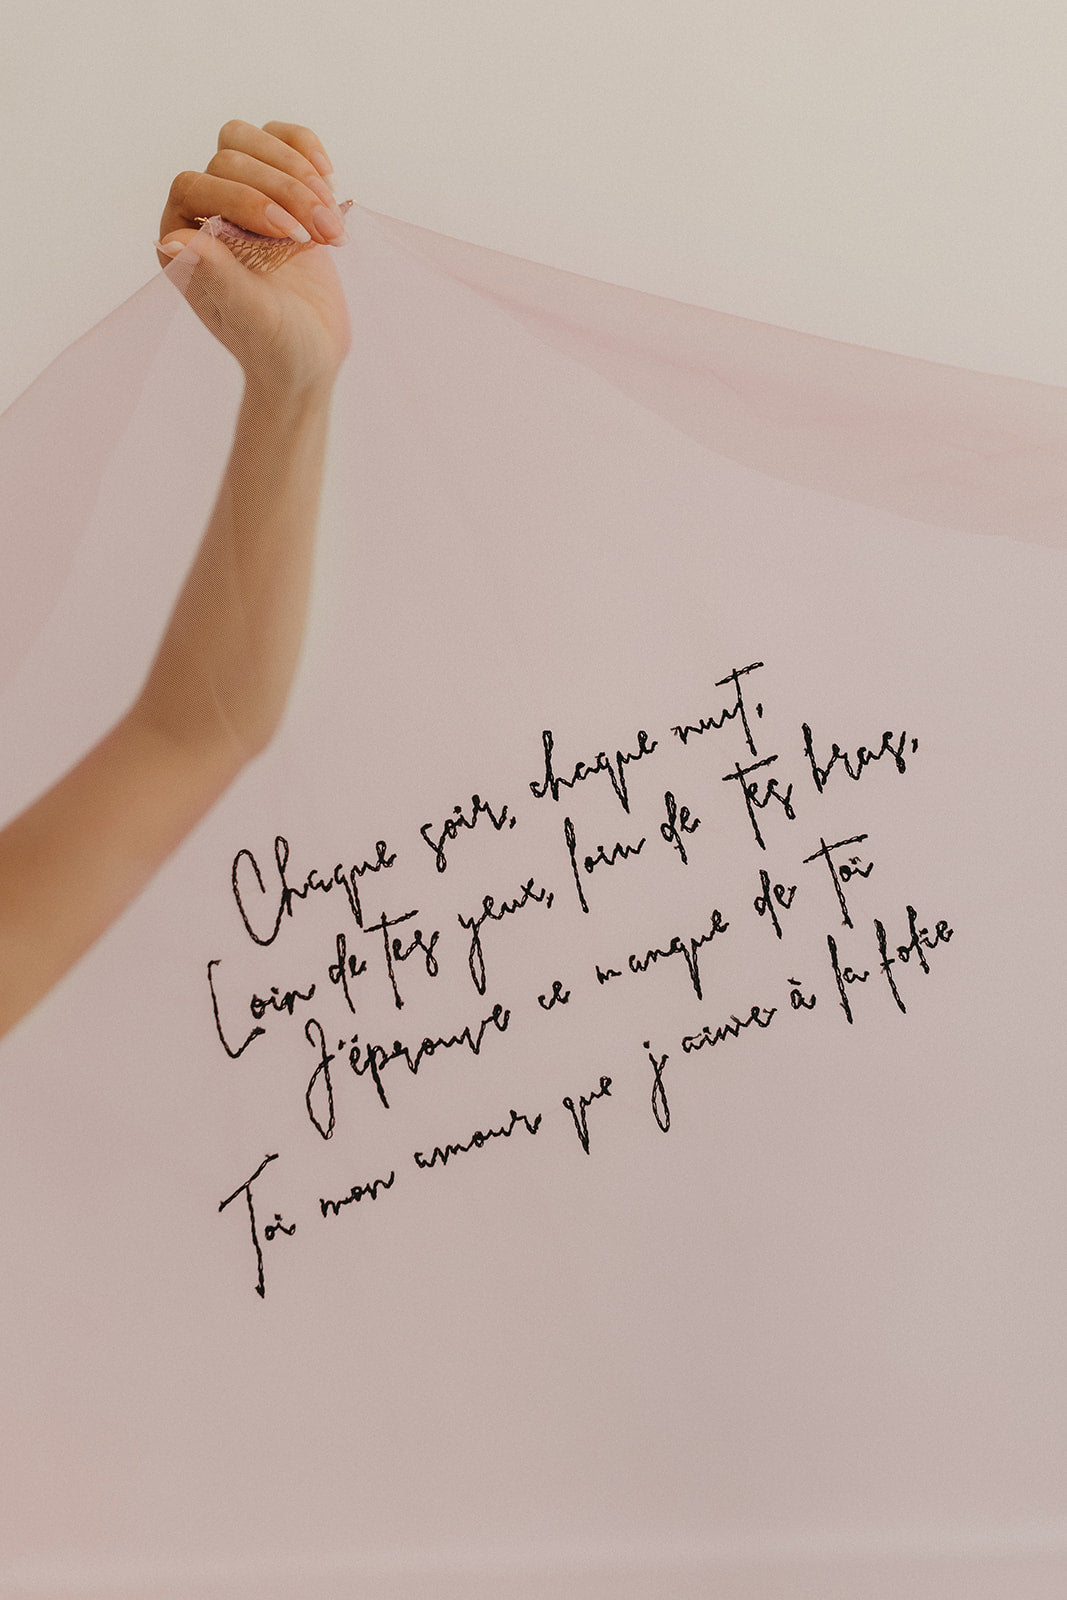 Chaque soir, chaque nuit,
Loin de tes yeux, loin de tes bras,
J'éprouve ce manque de toi
Toi mon amour que j'aime à la folie